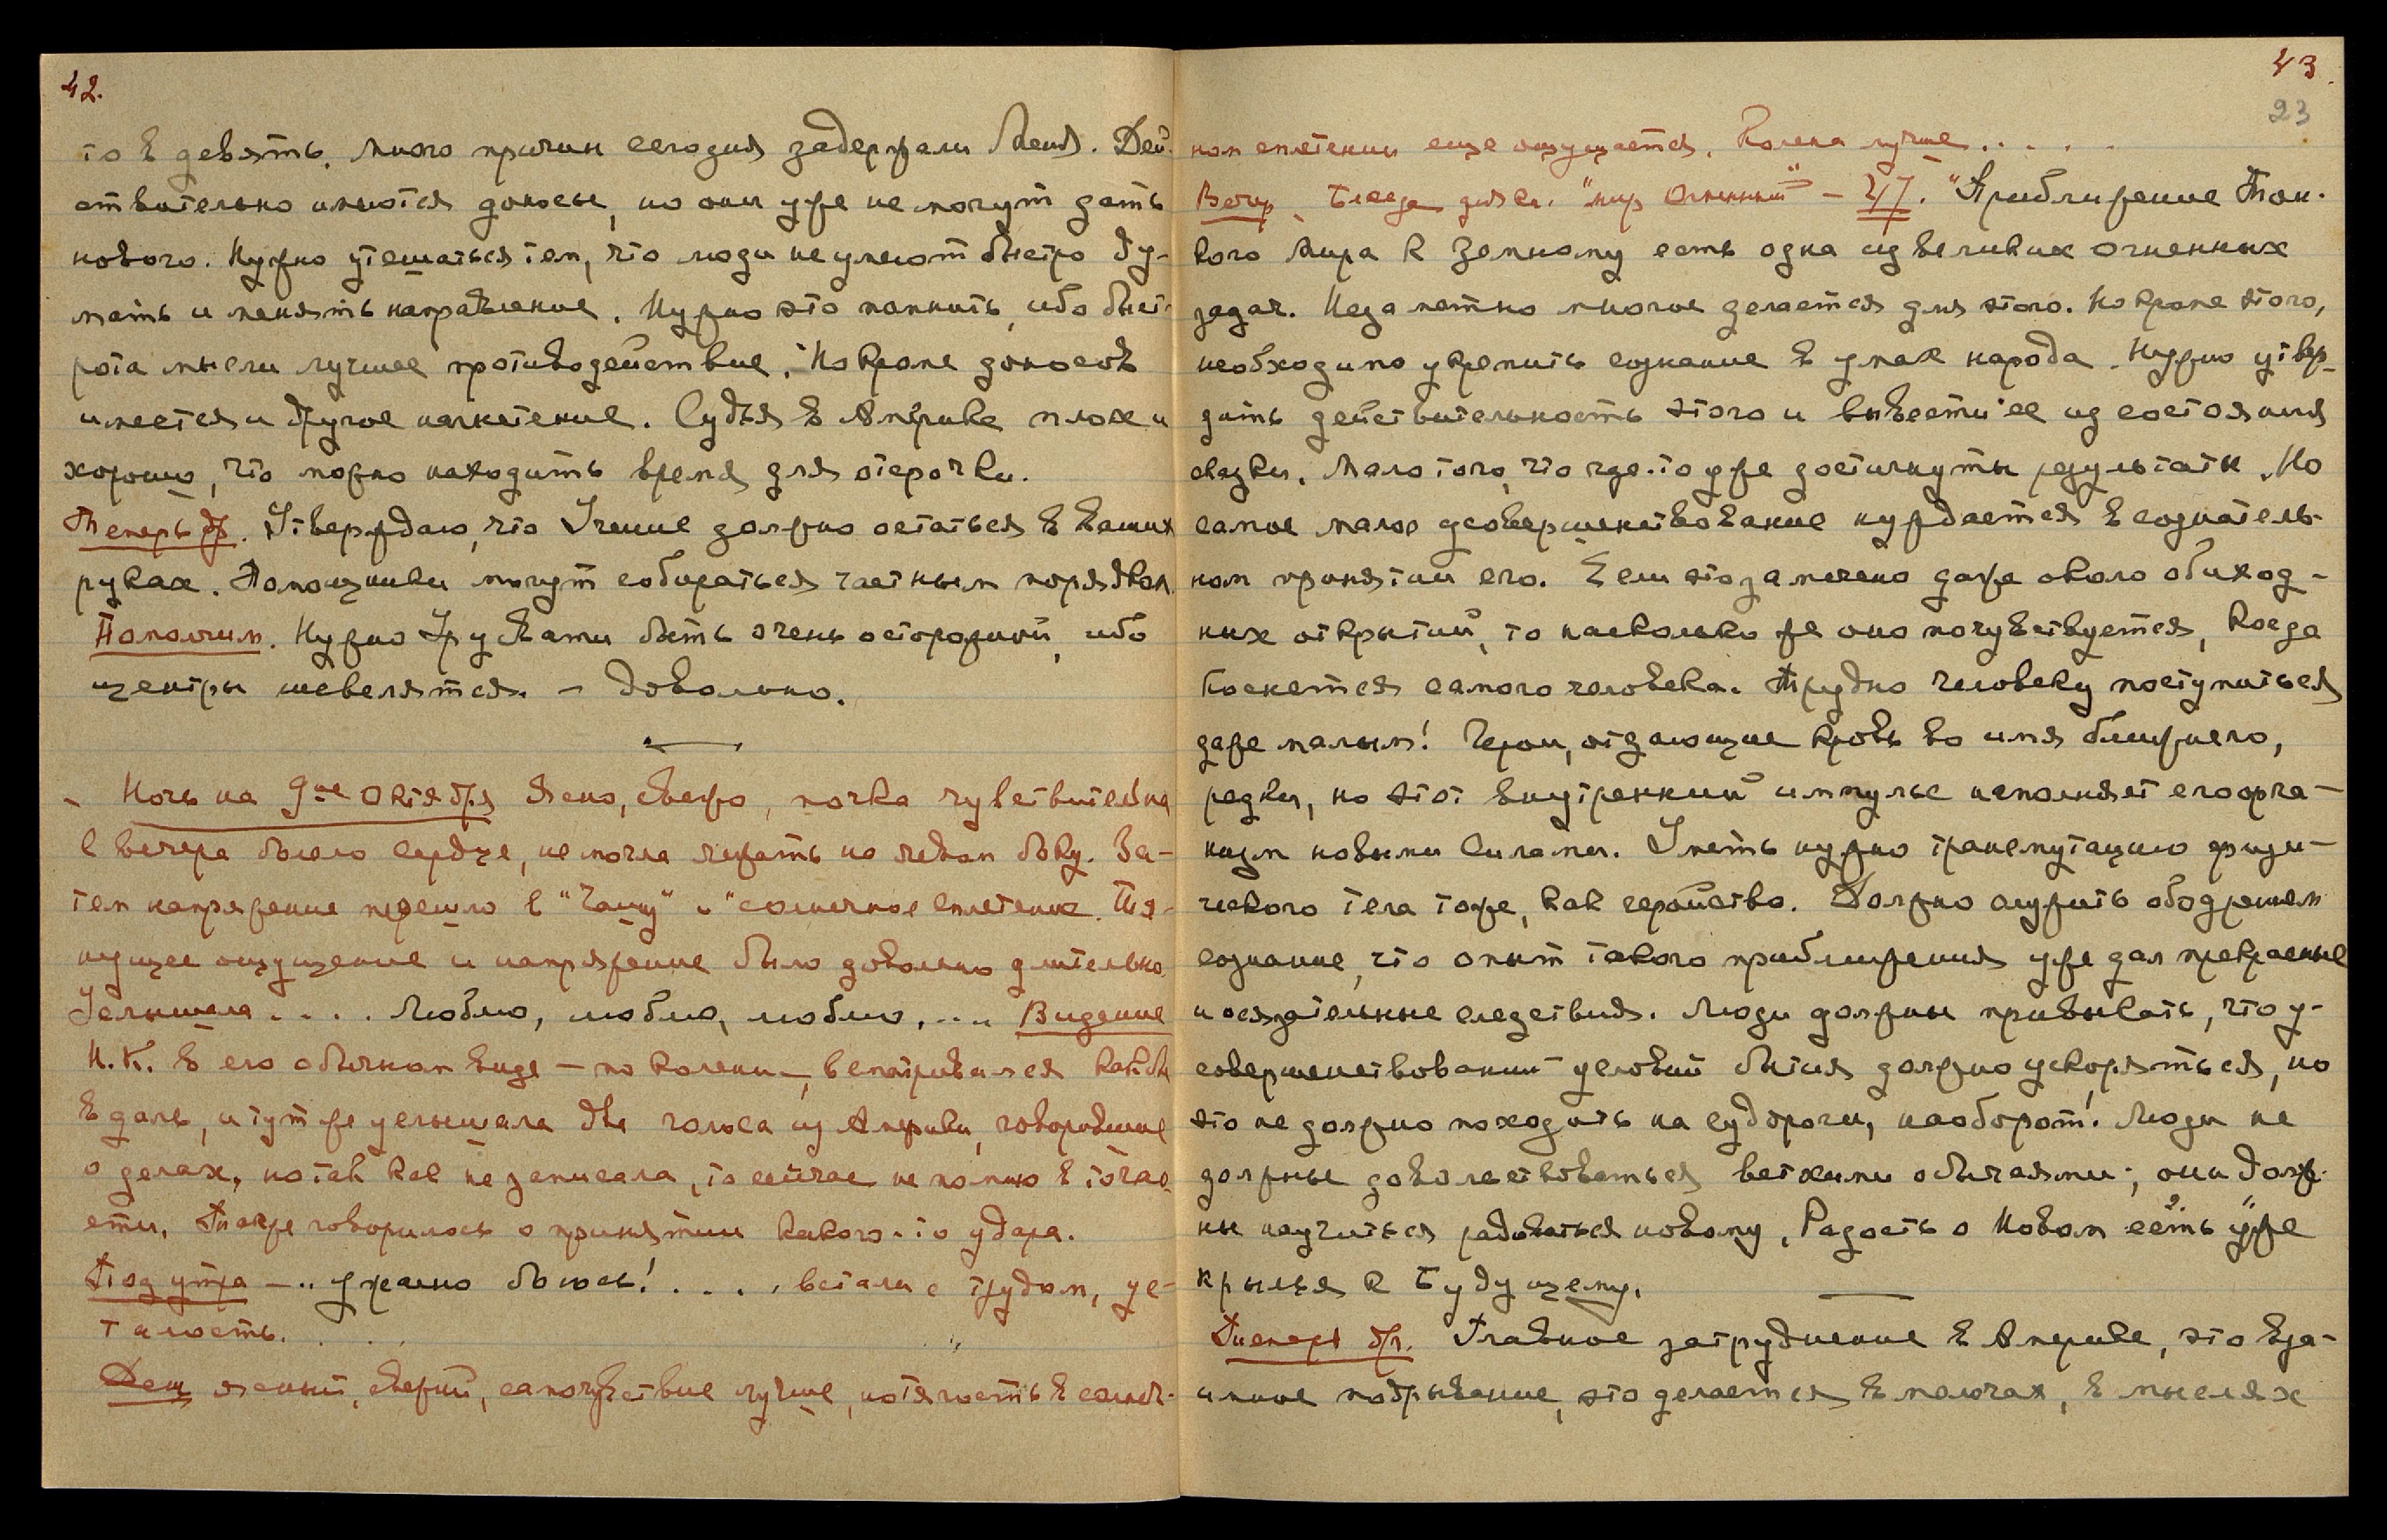 42.
то в девять. Много причин сегодня задержали Меня. Дей-
ствительно имеются доносы, но они уже не могут дать
нового. Нужно утешаться тем, что люди не умеют быстро ду-
мать и менять направление. Нужно это помнить, ибо быст-
рота мысли лучшее противодействие. Но кроме доносов
имеется и другое нагнетение. Судья в Америке плох и
хорошо, что можно находить время для отсрочки.
Теперь др. Утверждаю, что Учение должно остаться в ваших
руках. Помощники могут собираться частным порядком.
Помолчим. Нужно Урусвати быть очень осторожной, ибо
центры шевелятся. – Довольно.
Ночь на 9ое октября Ясно, свежо, почка чувствительна
С вечера болело сердце, не могла лежать на левом боку. За-
тем напряжение перешло в "Чашу" и "солнечное сплетение. Тя-
нущее ощущение и напряжение было довольно длительно.
Услышала . . . . Люблю, люблю, люблю, . . . Видение
Н.К. в его обычном виде – по колени –, всматривался как бы
в даль, и тут же услышала два голоса из Америки, говорившие
о делах, но так как не записала, то сейчас не помню в точно-
сти. Также говорилось о принятии какого-то удара.
Под утро – „ужасно боюсь! . . . . встала с трудом, ус-
талость. . . .
День ясный, свежий, самочувствие лучше, но тягость в солнеч-
43.
23
ном сплетении еще ощущается. Колена лучше . . . . .
Вечер. Беседа для кн. "Мир Огненный" – 47. "Приближение Тон-
кого Мира к Земному есть одна из великих огненных
задач. Незаметно многое делается для этого. Но кроме этого,
необходимо укрепить сознание в умах народа. Нужно утвер-
дить действительность этого и вывести ее из состояния
сказки. Мало того, что где-то уже достигнуты результаты. Но
самое малое усовершенствование нуждается в сознатель-
ном принятии его. Если это замечено даже около обиход-
ных открытий, то насколько же оно почувствуется, когда
коснется самого человека. Трудно человеку поступиться
даже малым! Герои, отдающие кровь во имя ближнего,
редки, но этот внутренний импульс наполняет его орга-
низм новыми силами. Уметь нужно трансмутацию физи-
ческого тела тоже, как геройство. Должно служить ободрением
сознание, что опыт такого приближения уже дал прекрасные
и осязательные следствия. Люди должны привыкать, что у-
совершенствований условий бытия должно ускоряться, но
это не должно походить на судороги, наоборот! Люди не
должны довольствоваться ветхими обычаями; они долж-
ны научиться радоваться новому. Радость о Новом есть уже
крылья к Будущему.
Теперь др. Главное затруднение в Америке, это вза-
имное подрывание, это делается в мелочах, в мыслях